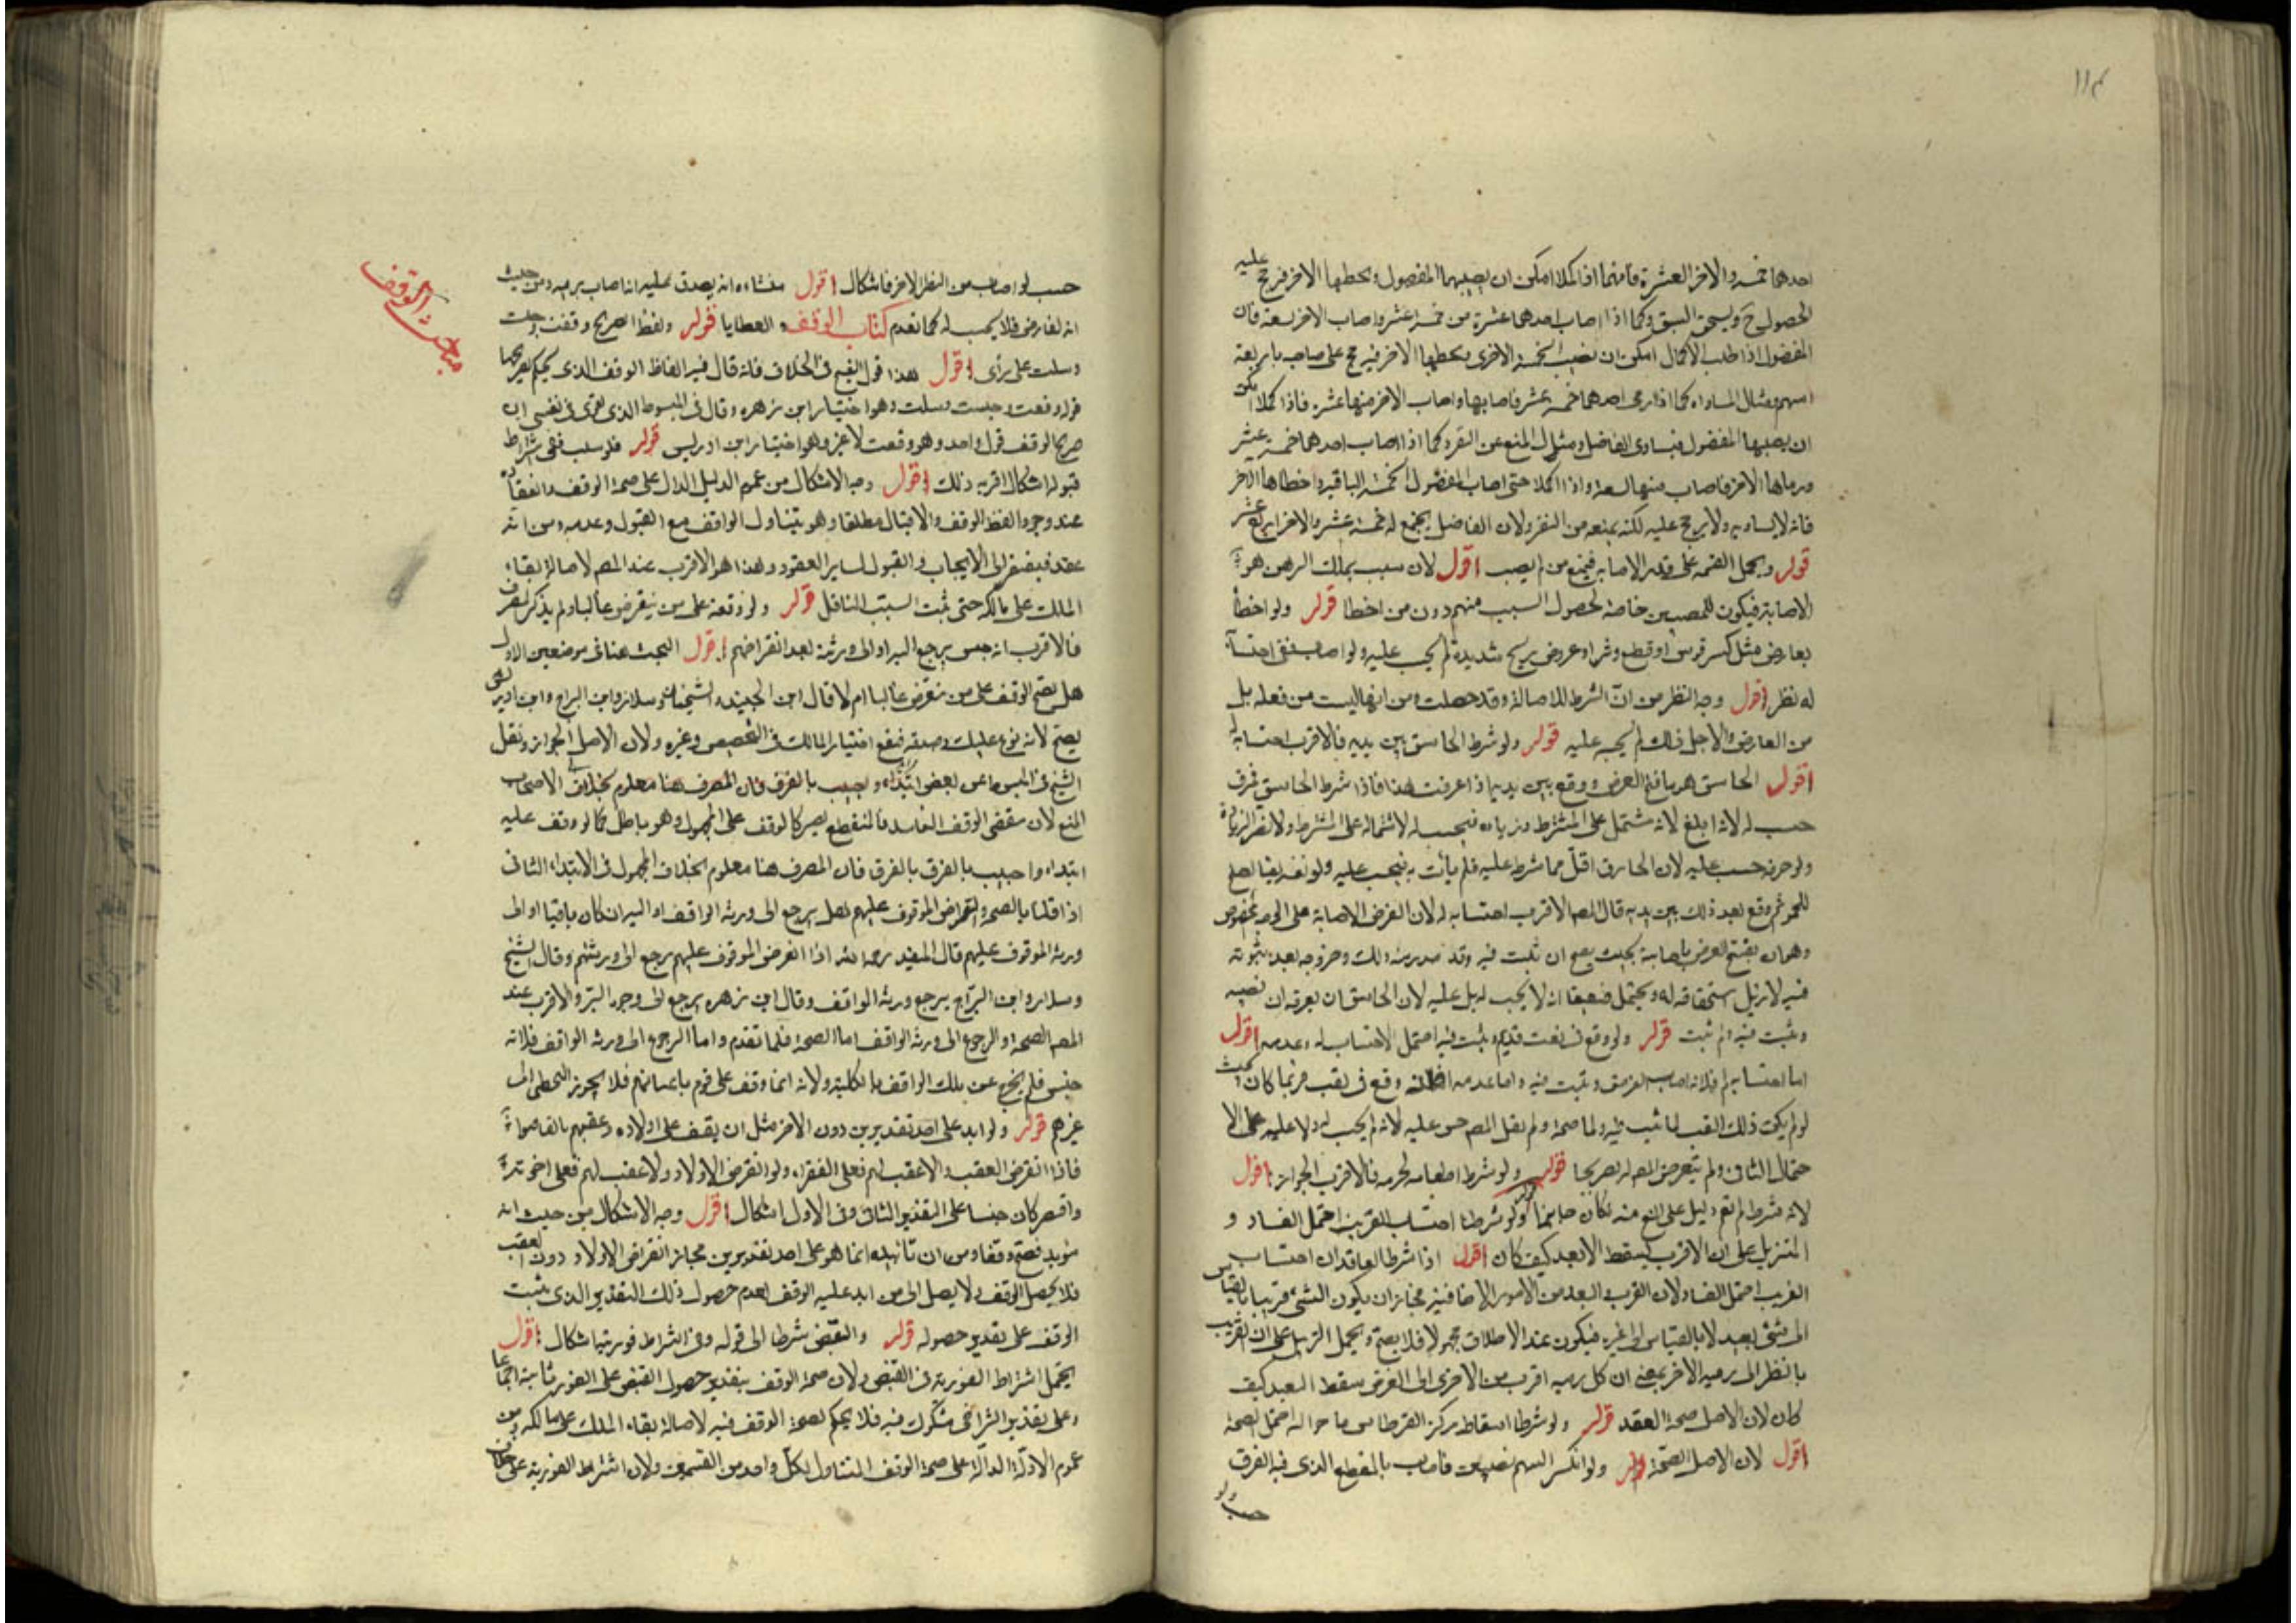 ١١٤
احدهما خمسة والاخر العشرة فانهما اذا اكملا امكن ان يصيبهما المفضول ويخطيها الاخر فيرجح عليه
لحصول ح ويستحق السبق وكما اذا اصاب احدهما عشرة من خمسة عشر واصاب الاخر تسعة فان
المفضول اذا طلب الاكمال امكن ان يصيب الخمسة الاخرى ويخطيها الاخر فيرجح على صاحبه باربعة
اسهم ومثال المساواة كما اذا رمى احدهما خمسة عشر فاصابها واصاب الاخر منها عشرة فاذا اكملا امكن
ان يصيبها المفضول فيساوى الفاضل ومثال المنع عن التفرد كما اذا اصاب احدهما خمسة عشر
ورماها الاخر فاصاب منها تسعة واذا اكملا حتى اصاب المفضول الخمسة الباقية واخطاها الاخر
فانه لا يساويه ولا يرجح عليه لكنه يمنعه من التفرد لان الفاضل يجتمع له خمسة عشر والاخر اربع عشر
قوله ويحمل القسمة على قدر الاصابة فيمنع من لم يصب اقول لان سبب تملك الرهن هو
الاصابة فيكون للمصيبين خاصة لحصول السبب منهم دون من اخطا قوله ولو اخطأ
بعارض مثل كسر قوس او قطع وتر او عروض ريح شديدة لم يحسب عليه ولو اصاب ففى احتسابه
له نظر اقول وجه النظر من ان الشرط الاصالة وقد حصلت ومن انها ليست من فعله بل
من العارض ولاجل ذلك لم يحسب عليه قوله ولو شرط الخاسق بين يديه فالاقرب احتسابه له
اقول الخاسق هو ما فتح الغرض ووقع بين يديه اذا عرفت هذا فاذا شرط الخاسق فمرق
حسب له لانه ابلغ لانه مشتمل على المشترط وزيادة فيحسب له لاشتماله على الشرط ولا تضر الزيادة
ولو خرق حسب عليه لان الخارق اقل مما شرط عليه فلم يأت به فيحسب عليه ولو
ثم وقع بعد ذلك بين يديه قال المص الاقرب احتسابه له لان الغرض الاصابة على الوجه المخصوص
وهو ان يفتح الغرض باصابة بحيث يصح ان يثبت فيه وقد صدر منه ذلك وخروجه بعد ثبوته
فيه لا يزيل استحقاقه له ويحتمل ضعيفا انه لا يحسب له بل عليه لان الخاسق ان يعرفه ان نصيبه
ويثبت فيه ولم يثبت قوله ولو وقع فى نقب قديم وثبت فيه احتمل الاحتساب له وعدمه اقول
اما احتسابه له فلانه اصاب الغرض وثبت فيه واما عدمه فلانه وقع فى نقب فربما كان بحيث
لو لم يكن ذلك النقب لما ثبت فيه ولما صحة ولم يقل المص حسب عليه لانه لم يحسب له ولا عليه على الا
حتمال الثانى ولم يتعرض المص له تصريحا قوله ولو شرط اطعامه لحزبه فالاقرب الجواز اقول
لانه شرط لم يقع دليل على المنع منه فكان جايزا قوله ولو شرطا احتساب القريب احتمل الفساد و
التنزيل على ان الاقرب يسقط الابعد كيف كان اقول اذا شرط العاقدان احتساب
القريب احتمل الفساد لان القرب والبعد من الامور الاضافية فجاز ان يكون الشئ قريبا بالقياس
الى شئ بعيد لا بالقياس الى غيره فيكون عند الاطلاق مجهولا فلا يصح ويحتمل التنزيل على ان القريب
بالنظر الى رمية الاخر بمعنى ان كل رمية اقرب من الاخرى الى الغرض يسقط البعيد كيف
كان لان الاصل صحة العقد قوله ولو شرطا اسقاط مركز القرطاس ما حواله احتمل الصحة
اقول لان الاصل الصحة قوله ولو انكسر السهم نصفين فاصاب بالمقطع الذى فيه الفرق
حسب ولو
مباحث الوقف
حسب لو اصاب من النظر الاخر فاشكال اقول منشاءه انه يصدق عليه انه اصاب برميه ومن حيث
انه لعارض فلا يحسب له كما تقدم كتاب الوقف والعطايا قوله ولفظ الصريح وقفت وحبست
وسبلت على رأى اقول هذا قول الشيخ فى الخلاف فانه قال فيه الفاظ الوقف الذى يحكم بصريحها
قوله وقفت وحبست وسبلت وهو اختيار ابن زهره وقال فى المبسوط الذى يقوى فى نفسى ان
صريح الوقف قول واحد وهو وقفت لا غير وهو اختيار ابن ادريس قوله فلو سبب ففى اشتراط
قبوله اشكال اقربه ذلك اقول وجه الاشكال من عموم الدليل الدال على صحة الوقف وانعقاده
عند وجود الفظ الوقف والاقبال مطلقا وهو يتناول الواقف مع القبول وعدمه ومن انه
عقد فيفتقر الى الايجاب والقبول لساير العقود وهذا هو الاقرب عند المص لاصالة بقاء
الملك على مالكه حتى يثبت السبب الناقل قوله ولو وقفه على من ينقرض غالبا ولم يذكر المصرف
فالاقرب انه حبس يرجع اليه او الى ورثته بعد انقراضهم اقول البحث هنا فى موضعين الاول
هل يصح الوقف على من ينقرض غالبا ام لا قال ابن الجنيد والشيخان وسلار وابن البراج وابن ادريس
يصح لانه نوع تمليك وصدقة فيتبع اختيار المالك فى التخصيص وغيره ولان الاصل الجواز ونقل
الشيخ فى المبسوط عن بعض الاصحاب
المنع لان مقتضى الوقف التابيد فالمنقطع يصير كالوقف على المجهول وهو باطل كما لو وقف عليه
ابتداء واجيب بالفرق بالفرق فان المصرف هنا معلوم بخلاف المجهول فى الابتداء الثانى
اذا قلنا بالصحة وانقراض الموقوف عليهم هل يرجع الى ورثة الواقف او اليه ان كان باقيا او الى
ورثة الموقوف عليهم قال المفيد رحمه الله اذا انقرض الموقوف عليهم يرجع الى ورثتهم وقال الشيخ
وسلار وابن البراج يرجع ورثة الواقف وقال ابن زهره يرجع الى وجوه البر والاقرب عند
المص الصحة والرجوع الى ورثة الواقف اما الصحة فلما تقدم واما الرجوع الى ورثة الواقف فلانه
حبس فلم يخرج عن ملك الواقف بالكلية ولانه انما وقف على قوم باعيانهم فلا يجوز التخطى الى
غيرهم قوله ولو ابد على احد تقديرين دون الاخر مثل ان يقف على اولاده وعقبهم
فاذا انقرض العقب ولا عقب لهم فعلى الفقراء ولو انقرض الاولاد ولا عقب لهم فعلى اخوته
واقتصر كان حبسا على التقدير الثانى وفى الاول اشكال اقول وجه الاشكال من حيث انه
مؤبد فصح وقفا ومن ان تابيده انما هو على احد تقديرين فجاز انقراض الاولاد دون العقب
فلا يحصل الوقف ولا يصل الى من ابد عليه الوقف لعدم حصول ذلك التقدير الذى يثبت
الوقف على تقدير حصوله قوله والقبض شرط الى قوله وفى اشتراط فوريتها اشكال اقول
يحتمل اشتراط الفورية فى القبض ولان صحة الوقف بتقدير حصول القبض على الفور ثابتة اجماعا
وعلى تقدير التراخى مشكوك فيه فلا يحكم لصحة الوقف فيه لاصالة بقاء الملك على مالكه ومن
عموم الادلة الدالة على صحة الوقف المتناول لكل واحد من القسمين ولان اشتراط الفورية على خلاف